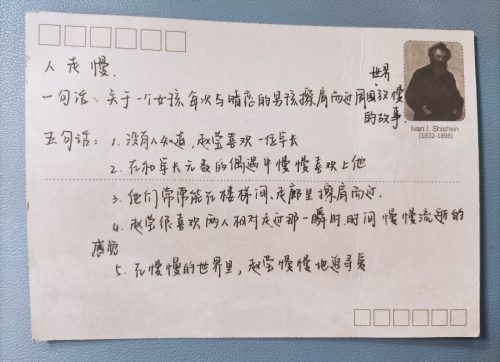 人走慢.
一句话：关于一个女孩每次与暗恋的男孩擦肩而过周围世界放慢的故事.
Ivan I. Shishkin
(1832-1898)
五句话：1. 没有人知道，赵莹喜欢一位学长
2. 在和学长无数的偶遇中慢慢喜欢上他
3. 他们常常能在楼梯间、走廊里擦肩而过.
4. 赵莹很喜欢两人相对走过那一瞬时、时间慢慢流逝的感觉
5. 在慢慢的世界里，赵莹慢慢地追寻爱